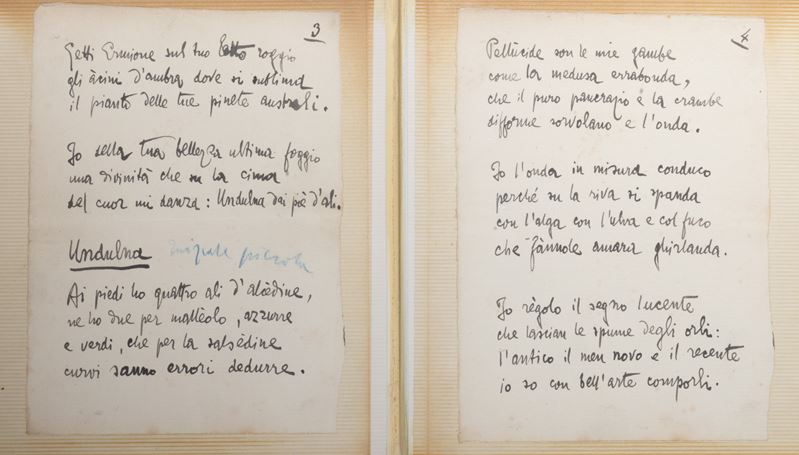 3
Getti Ermione sul tuo letto roggio
gli àcini d'ambra dove si sublima
il pianto delle tue pinete australi.
Io della tua bellezza ultima foggio
una divinità che su la cima
del cuor mi danza: Undulna dai piè d'ali.
Undulna iniziale piccola
Ai piedi ho quattro ali d'alcèdine,
ne ho due per mallèolo, azzurre
e verdi, che per la salsèdine
curvi sanno errori dedurre.
4
Pellùcide son le mie gambe
come la medusa errabonda,
che il puro pancrazio e la crambe
difforme sorvolano e l'onda.
Io l'onda in misura conduco
perché su la riva si spanda
con l'alga con l'ulva e col fuco
che fànnole amara ghirlanda.
Io règolo il segno lucente
che lascian le spume degli orli:
l'antico il men novo e il recente
io so con bell'arte comporli.